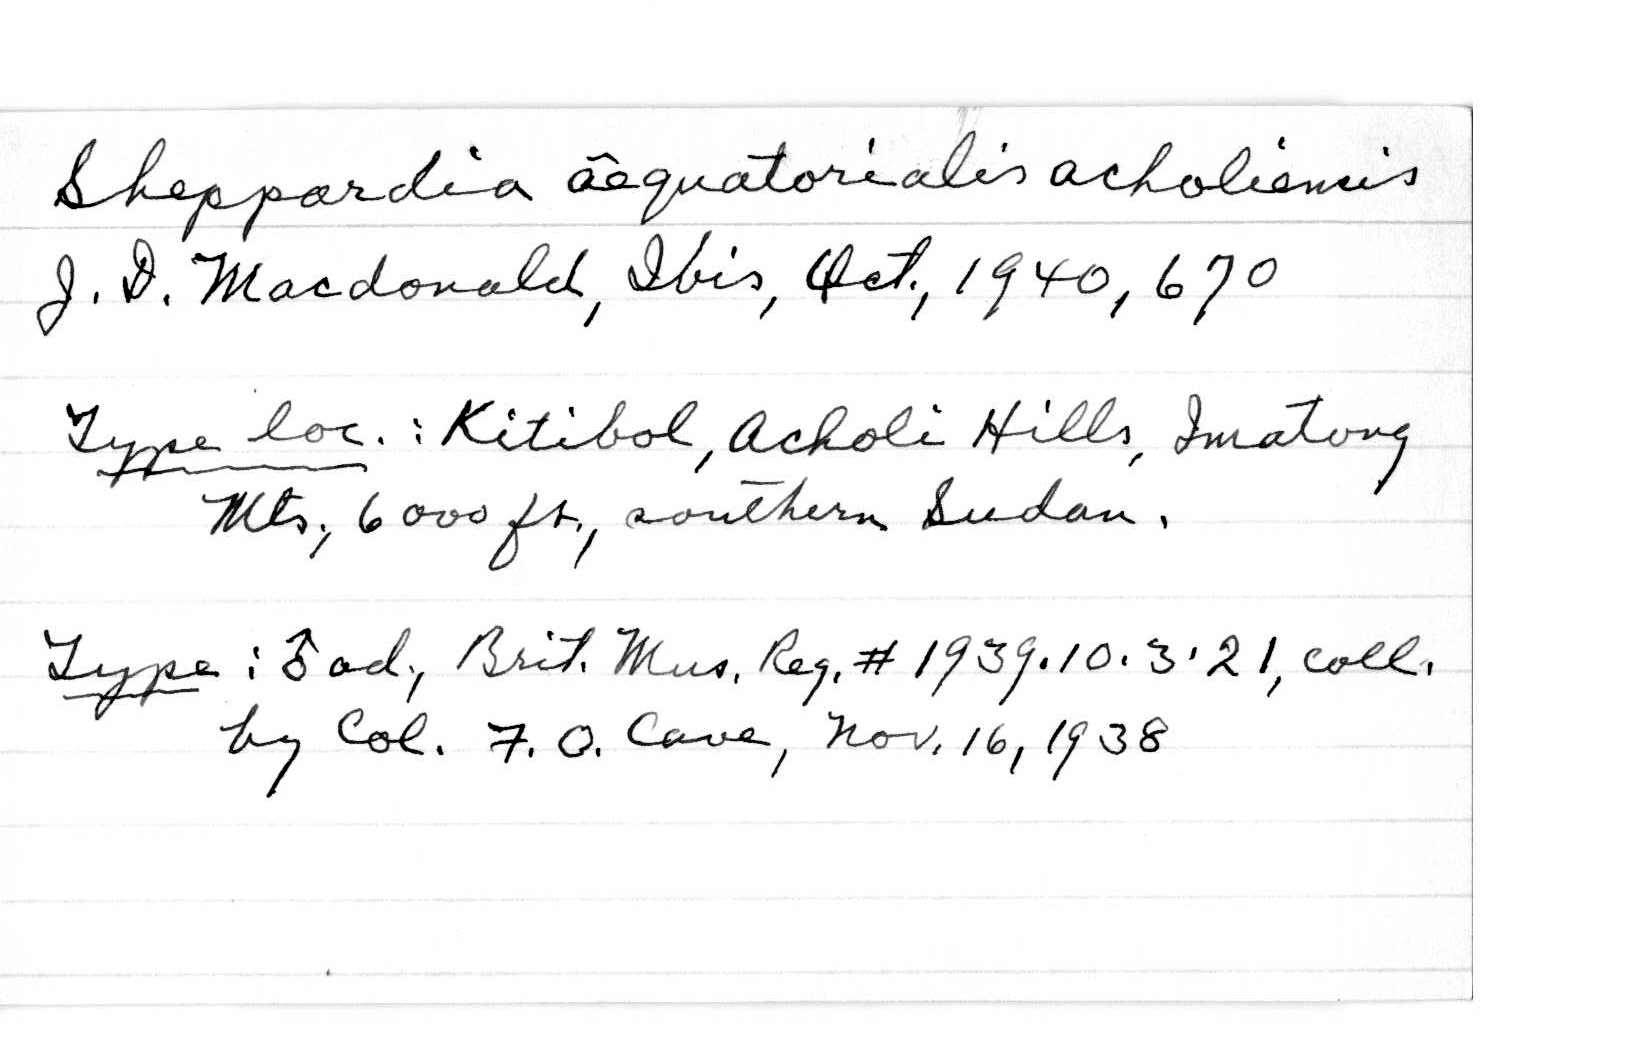 Sheppardia aequatorialis acholiensis
J. D. Macdonald, Ibis, Oct., 1940, 670
Type loc. : Kitibol, Acholi Hills, Imatong
Mts., 6000 ft., southern Sudan.
Type : ♂ ad., Brit. Mus. Reg. # 1939.10.3.21, coll.
by Col. F. O. Cave, Nov. 16, 1938